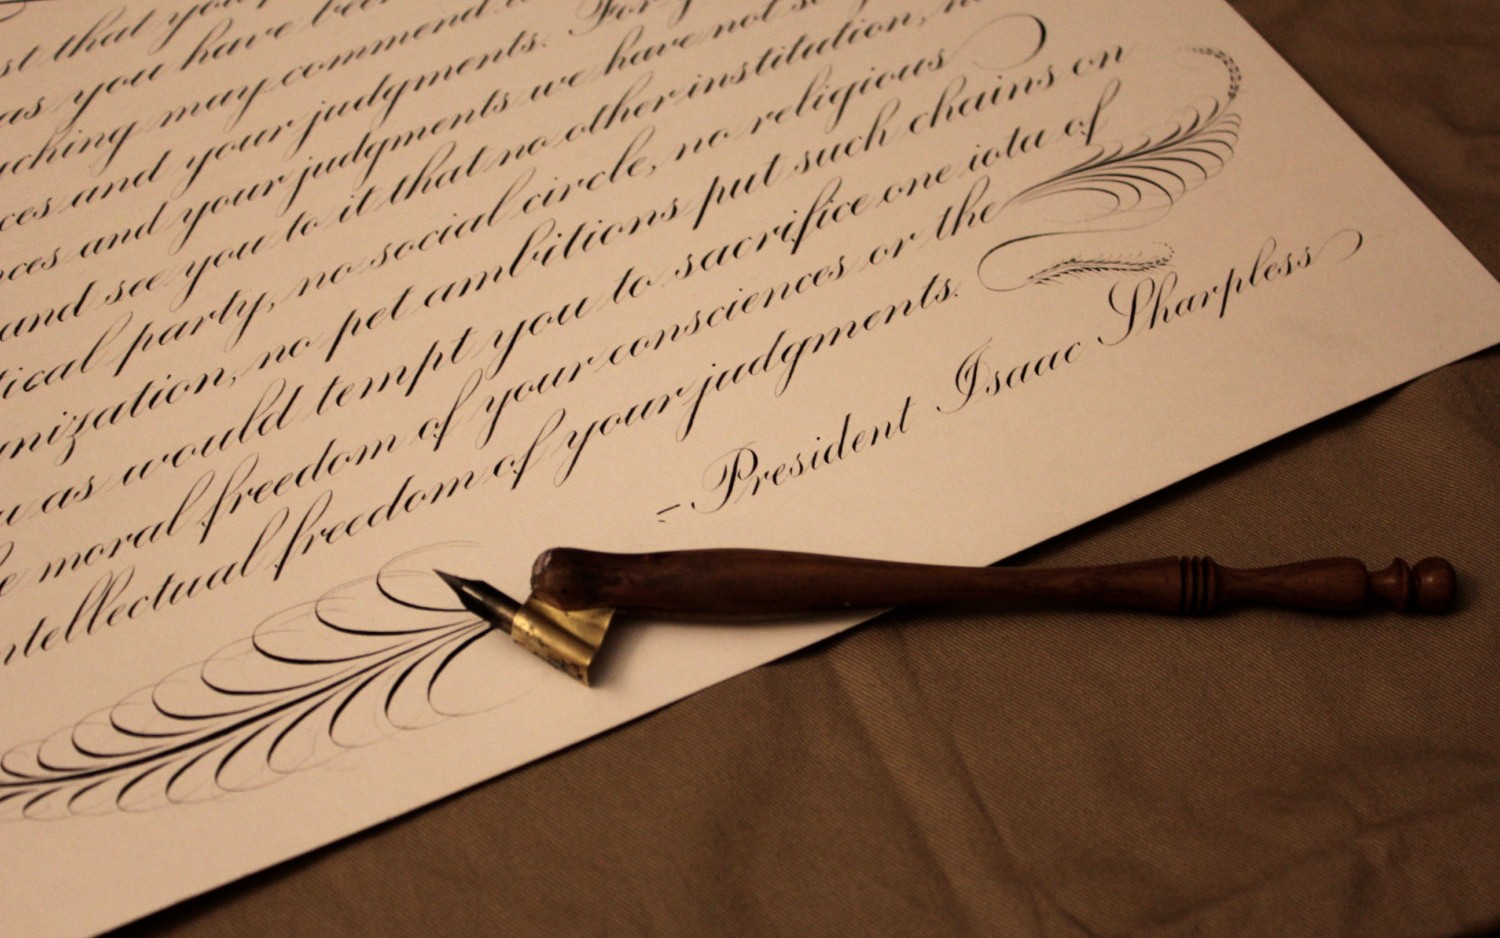 st that you
as you have been
ching may commend
ces and your judgments. For
nces and your judgments we have not
and see you to it that no other institution, no
tical party, no social circle, no religious
nization, no pet ambitions put such chains on
u as would tempt you to sacrifice one iota of
e moral freedom of your consciences or the
ntellectual freedom of your judgments.
- President Isaac Sharpless